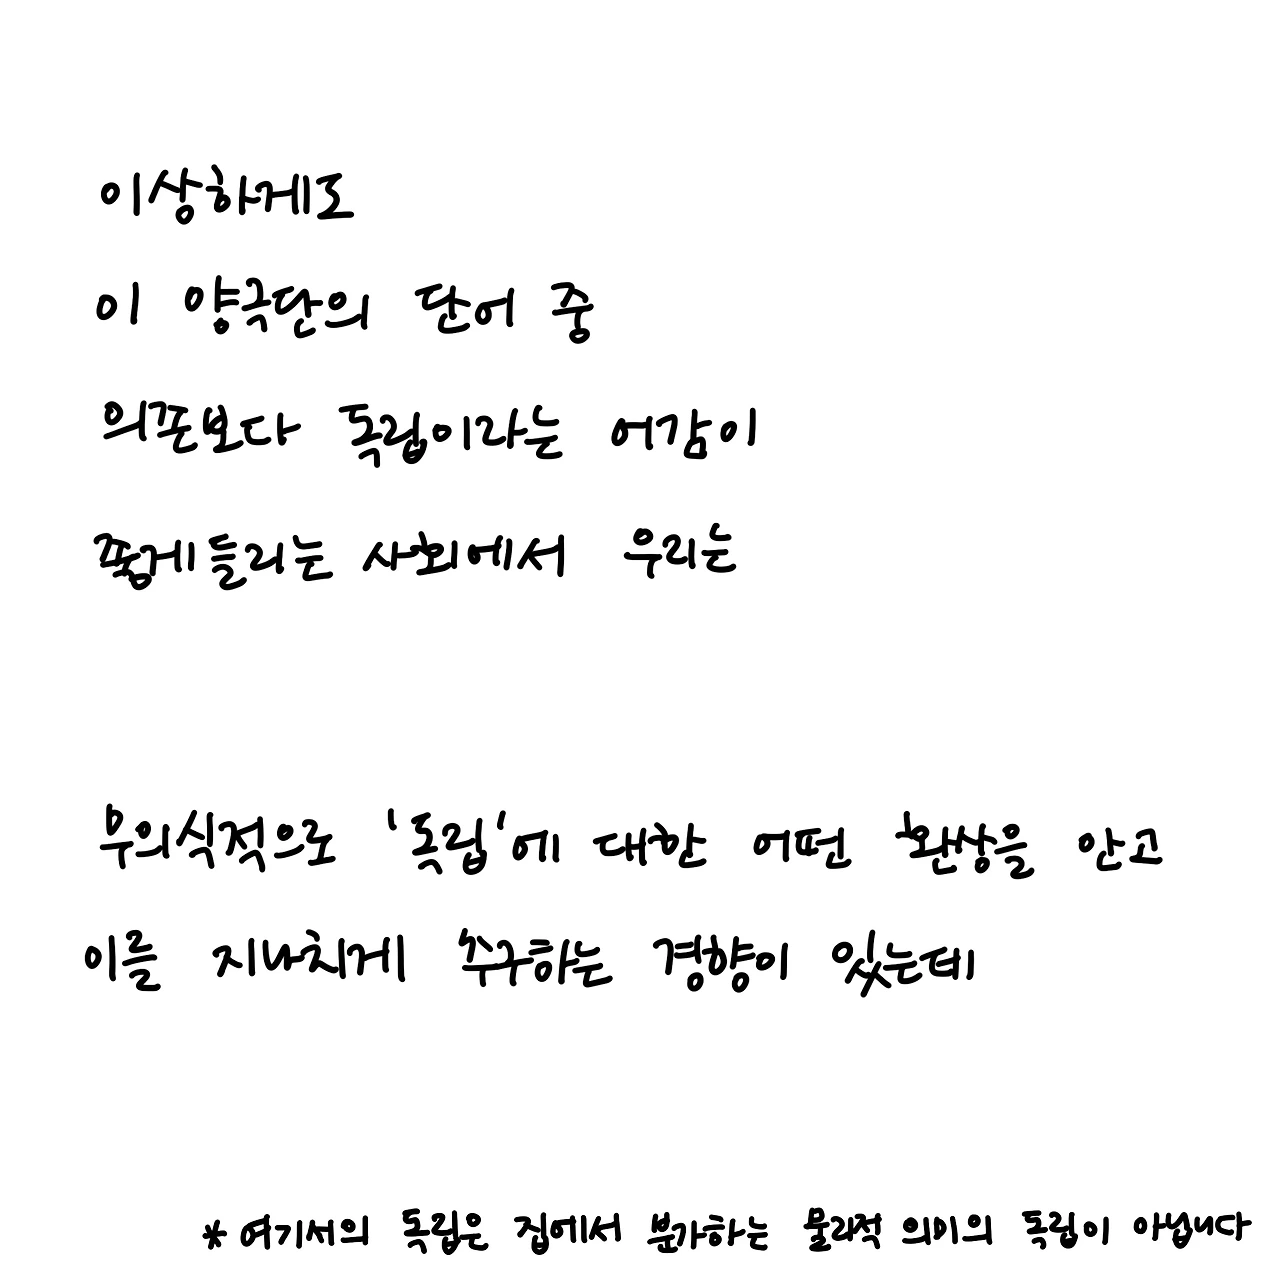 이상하게도
이 양극단의 단어 중
의존보다 독립이라는 어감이
좋게들리는 사회에서 우리는
무의식적으로 '독립'에 대한 어떤 환상을 안고
이를 지나치게 추구하는 경향이 있는데
* 여기서의 독립은 집에서 분가하는 물리적 의미의 독립이 아닙니다